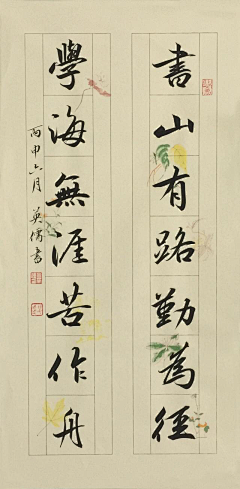 書山有路勤為徑
學海無涯苦作舟
丙申六月英儒書